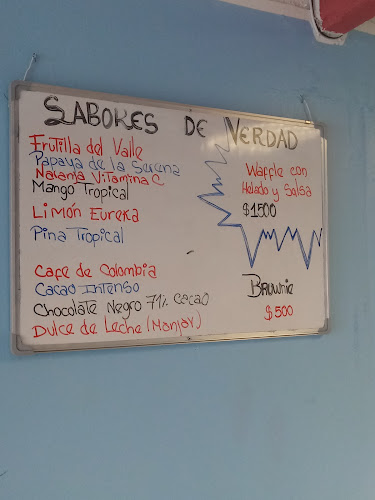 SABORES DE VERDAD
Frutilla del Valle
Papaya de la Serena
Naranja Vitamina C
Mango Tropical
Limón Eureka
Pina Tropical
Café de Colombia
Cacao Intenso
Chocolate Negro 71% cacao
Dulce de Leche (Manjar)
Waffle con
Helado y Salsa
$1500
Brownie
$500